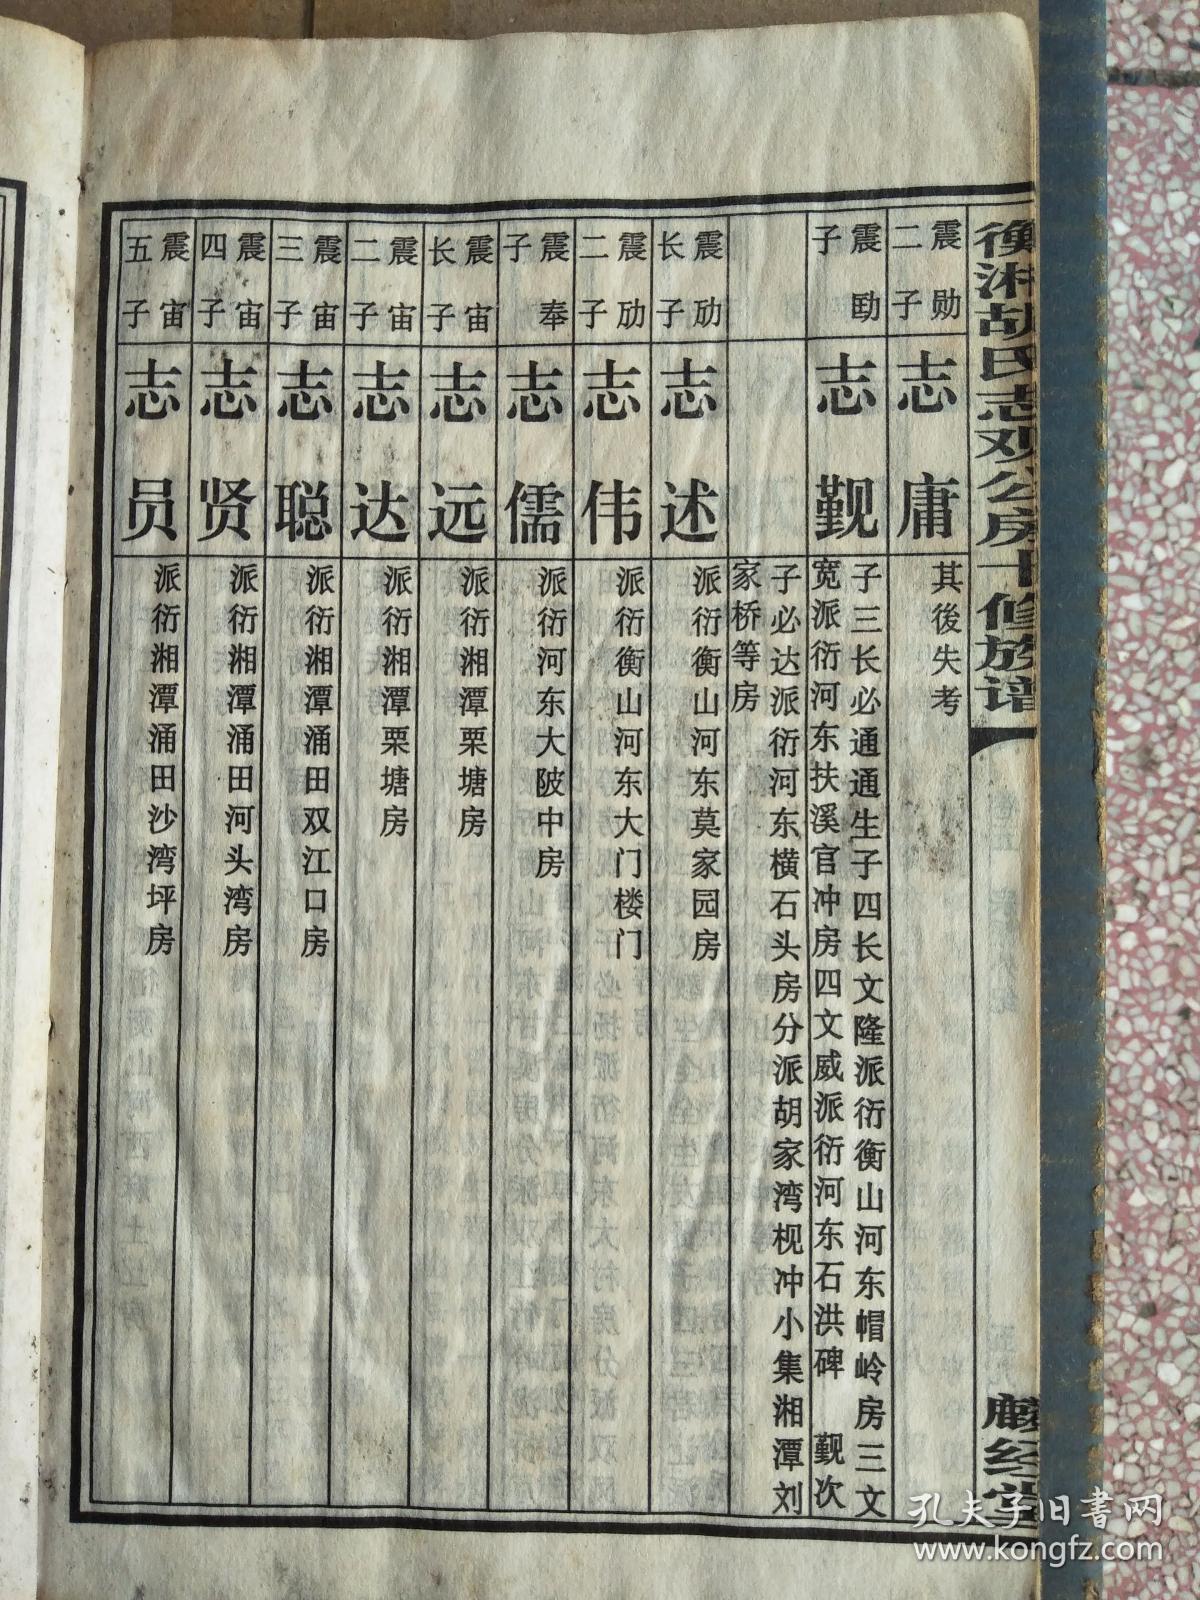 衡湘胡氏志观公房十修族谱
麟经堂
震勋
二子
志庸
其後失考
震勖
子
志觐
子三长必通通生子四长文隆派衍衡山河东帽岭房三文
宽派衍河东扶溪官冲房四文威派衍河东石洪碑 觐次
子必达派衍河东横石头房分派胡家湾枧冲小集湘潭刘
家桥等房
震劢
长子
志述
派衍衡山河东莫家园房
震劢
二子
志伟
派衍衡山河东大门楼门
震奉
子
志儒
派衍河东大陂中房
震宙
长子
志远
派衍湘潭栗塘房
震宙
二子
志达
派衍湘潭栗塘房
震宙
三子
志聪
派衍湘潭涌田双江口房
震宙
四子
志贤
派衍湘潭涌田河头湾房
震宙
五子
志员
派衍湘潭涌田沙湾坪房
孔夫子旧书网
www.kongfz.com